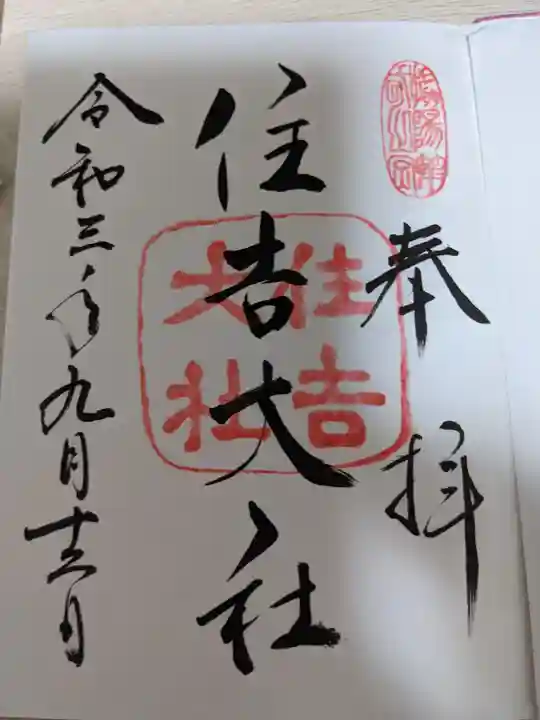 奉拝
住吉大社
住吉大社
令和三年九月十六日